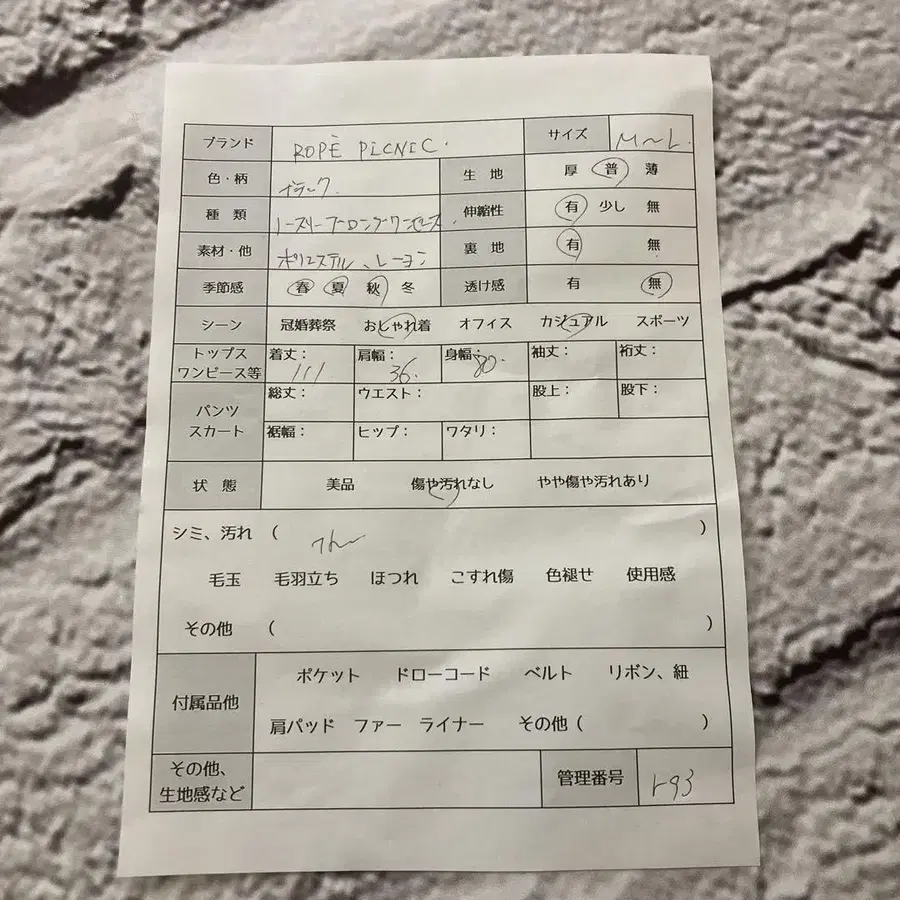 ブランド ROPÉ PICNIC. サイズ M〜L.
色・柄 ブラック. 生 地 厚 普 薄
種 類 ノースリーブロングワンピース. 伸縮性 有 少し 無
素材・他 ポリエステル、レーヨン 裏 地 有 無
季節感 春 夏 秋 冬 透け感 有 無
シーン 冠婚葬祭 おしゃれ着 オフィス カジュアル スポーツ
トップス ワンピース等 着丈: 111 肩幅: 36. 身幅: 80. 袖丈: 裄丈:
パンツ スカート 総丈: ウエスト: 股上: 股下:
裾幅: ヒップ: ワタリ:
状 態 美品 傷や汚れなし やや傷や汚れあり
シミ、汚れ ( )
毛玉 毛羽立ち ほつれ こすれ傷 色褪せ 使用感
その他 ( )
付属品他 ポケット ドローコード ベルト リボン、紐
肩パッド ファー ライナー その他 ( )
その他、 生地感など 管理番号 r93